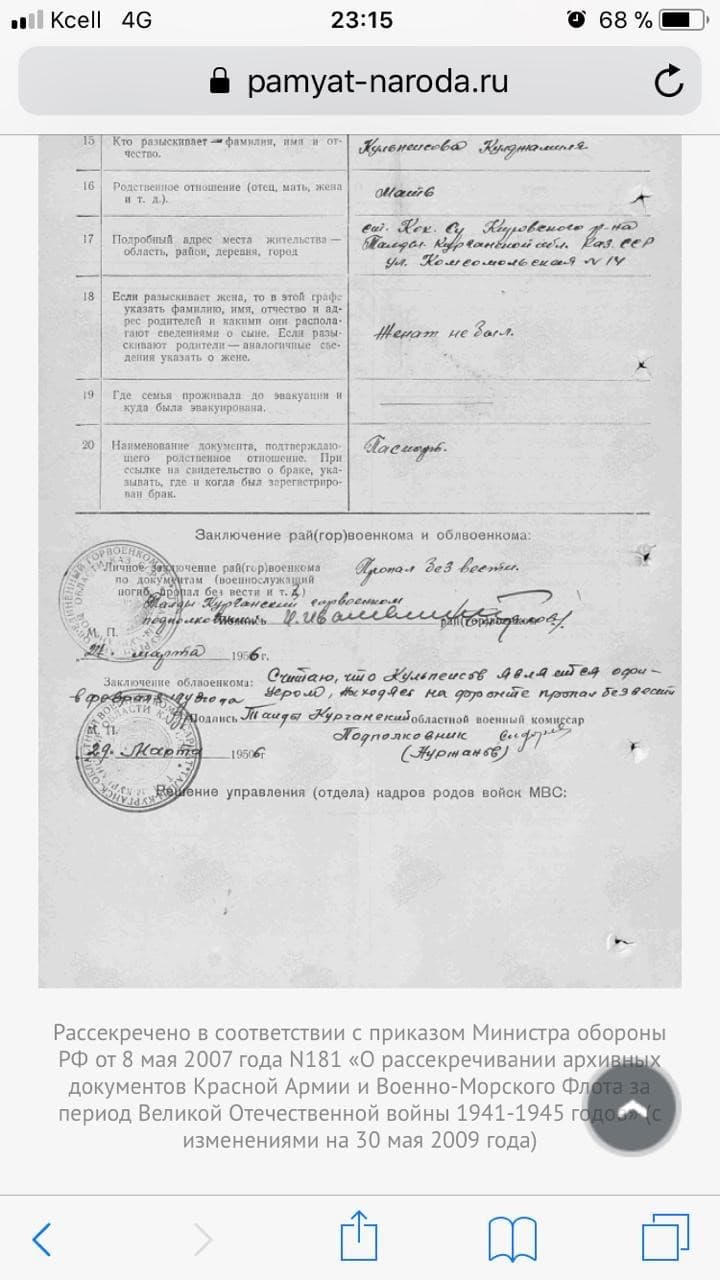 Kcell 4G 23:15 68 %
pamyat-naroda.ru
15 Кто разыскивает — фамилия, имя и от-
чество.
Кульпеисова Кулджамиля
16 Родственное отношение (отец, мать, жена
и т. д.).
мать
17 Подробный адрес места жительства —
область, район, деревня, город
ст. Кок. Су Кировского р-на
Талды-Курганской обл. Каз. ССР
ул. Комсомольская N 14
18 Если разыскивает жена, то в этой графе
указать фамилию, имя, отчество и ад-
рес родителей и какими они распола-
гают сведениями о сыне. Если разы-
скивают родители — аналогичные све-
дения указать о жене.
Женат не был.
19 Где семья проживала до эвакуации и
куда была эвакуирована.
20 Наименование документа, подтверждаю-
щего родственное отношение. При
ссылке на свидетельство о браке, ука-
зывать, где и когда был зарегистриро-
ван брак.
Паспорт.
Заключение рай(гор)военкома и облвоенкома:
Личное заключение рай(гор)военкома
по документам (военнослужащий
погиб, пропал без вести и т. д.)
Пропал без вести.
Талды Курганский горвоенком
подполковник
М. П.
марта 1956 г.
Заключение облвоенкома: Считаю, что Кульпеисов является офи-
цером, находясь на фронте пропал без вести
в феврале года
Подпись Талды Курганский областной военный комиссар
М. П.
Подполковник
29 Марта 1956 г
Решение управления (отдела) кадров родов войск МВС:
Рассекречено в соответствии с приказом Министра обороны
РФ от 8 мая 2007 года N181 «О рассекречивании архивных
документов Красной Армии и Военно-Морского Флота за
период Великой Отечественной войны 1941-1945 годов» (с
изменениями на 30 мая 2009 года)